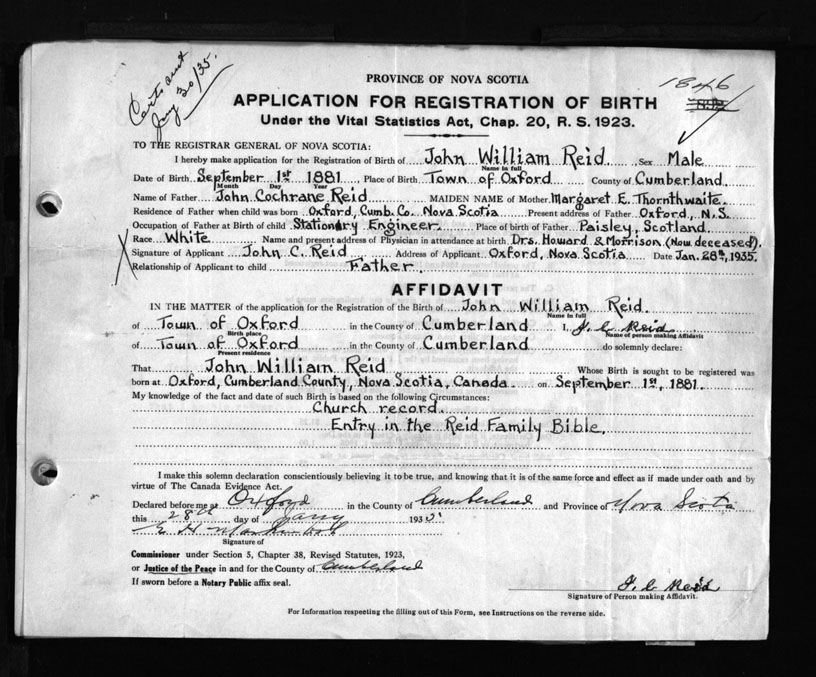 Certs sent
Jany 30/35.
PROVINCE OF NOVA SCOTIA
1846
APPLICATION FOR REGISTRATION OF BIRTH
Under the Vital Statistics Act, Chap. 20, R. S. 1923.
TO THE REGISTRAR GENERAL OF NOVA SCOTIA:
I hereby make application for the Registration of Birth of John William Reid Sex Male
Name in full
Date of Birth September 1st 1881 Place of Birth Town of Oxford County of Cumberland
Month Day Year
Name of Father John Cochrane Reid MAIDEN NAME of Mother Margaret E. Thornthwaite
Residence of Father when child was born Oxford, Cumb. Co. Nova Scotia Present address of Father Oxford, N.S.
Occupation of Father at Birth of child Stationary Engineer Place of birth of Father Paisley, Scotland
Race White Name and present address of Physician in attendance at birth Drs. Howard & Morrison (Now deceased).
Signature of Applicant John C. Reid Address of Applicant Oxford, Nova Scotia Date Jan. 28th, 1935.
Relationship of Applicant to child Father.
AFFIDAVIT
IN THE MATTER of the application for the Registration of the Birth of John William Reid
Name in full
of Town of Oxford in the County of Cumberland I, J. C Reid
Birth place Name of person making Affidavit
of Town of Oxford in the County of Cumberland do solemnly declare:
Present residence
That John William Reid Whose Birth is sought to be registered was
born at Oxford, Cumberland County, Nova Scotia, Canada on September 1st, 1881.
My knowledge of the fact and date of such Birth is based on the following Circumstances:
Church record.
Entry in the Reid Family Bible.
I make this solemn declaration conscientiously believing it to be true, and knowing that it is of the same force and effect as if made under oath and by
virtue of The Canada Evidence Act.
Declared before me at Oxford in the County of Cumberland and Province of Nova Scotia
this 28th day of Jany 1935
Signature of
Commissioner under Section 5, Chapter 38, Revised Statutes, 1923,
or Justice of the Peace in and for the County of Cumberland
If sworn before a Notary Public affix seal.
J. C Reid
Signature of Person making Affidavit.
For Information respecting the filling out of this Form, see Instructions on the reverse side.